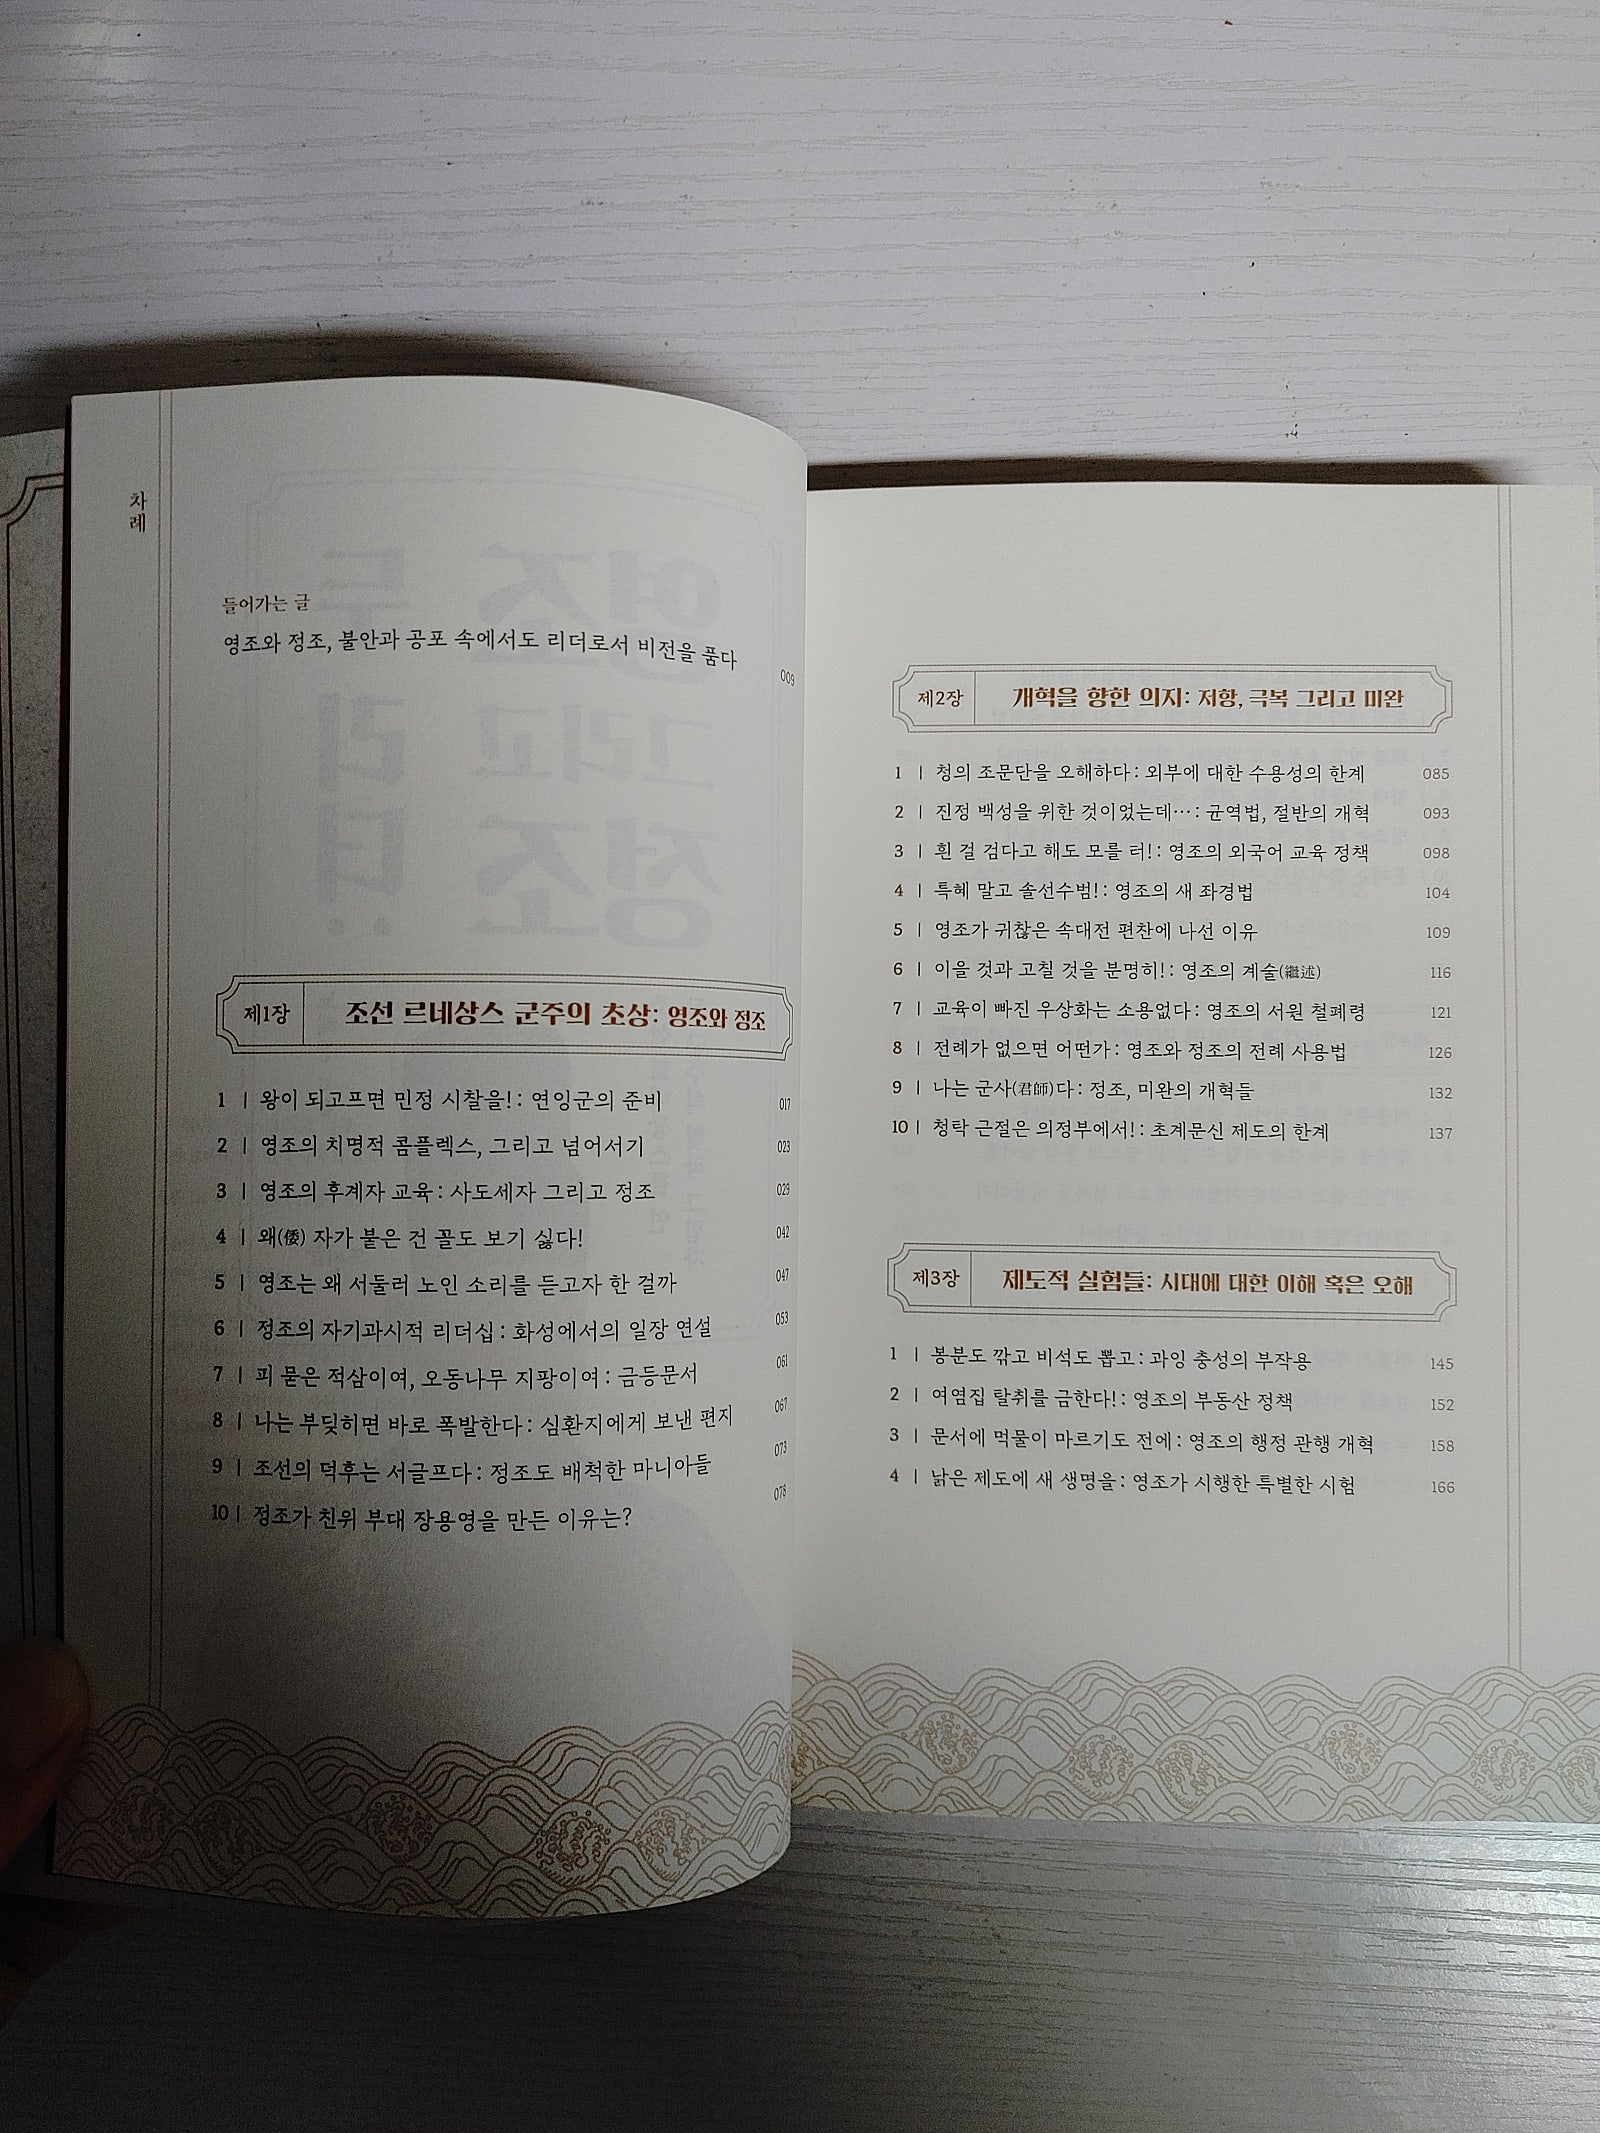 차례
들어가는 글
영조와 정조, 불안과 공포 속에서도 리더로서 비전을 품다 009
제1장 조선 르네상스 군주의 초상: 영조와 정조
1 | 왕이 되고프면 민정 시찰을!: 연잉군의 준비 017
2 | 영조의 치명적 콤플렉스, 그리고 넘어서기 023
3 | 영조의 후계자 교육: 사도세자 그리고 정조 029
4 | 왜(倭) 자가 붙은 건 꼴도 보기 싫다! 042
5 | 영조는 왜 서둘러 노인 소리를 듣고자 한 걸까 047
6 | 정조의 자기과시적 리더십: 화성에서의 일장 연설 053
7 | 피 묻은 적삼이여, 오동나무 지팡이여: 금등문서 061
8 | 나는 부딪히면 바로 폭발한다: 심환지에게 보낸 편지 067
9 | 조선의 덕후는 서글프다: 정조도 배척한 마니아들 073
10 | 정조가 친위 부대 장용영을 만든 이유는? 078
제2장 개혁을 향한 의지: 저항, 극복 그리고 미완
1 | 청의 조문단을 오해하다: 외부에 대한 수용성의 한계 085
2 | 진정 백성을 위한 것이었는데…: 균역법, 절반의 개혁 093
3 | 흰 걸 검다고 해도 모를 터!: 영조의 외국어 교육 정책 098
4 | 특혜 말고 솔선수범!: 영조의 새 좌경법 104
5 | 영조가 귀찮은 속대전 편찬에 나선 이유 109
6 | 이을 것과 고칠 것을 분명히!: 영조의 계술(繼述) 116
7 | 교육이 빠진 우상화는 소용없다: 영조의 서원 철폐령 121
8 | 전례가 없으면 어떤가: 영조와 정조의 전례 사용법 126
9 | 나는 군사(君師)다: 정조, 미완의 개혁들 132
10 | 청탁 근절은 의정부에서!: 초계문신 제도의 한계 137
제3장 제도적 실험들: 시대에 대한 이해 혹은 오해
1 | 봉분도 깎고 비석도 뽑고: 과잉 충성의 부작용 145
2 | 여염집 탈취를 금한다!: 영조의 부동산 정책 152
3 | 문서에 먹물이 마르기도 전에: 영조의 행정 관행 개혁 158
4 | 낡은 제도에 새 생명을: 영조가 시행한 특별한 시험 166